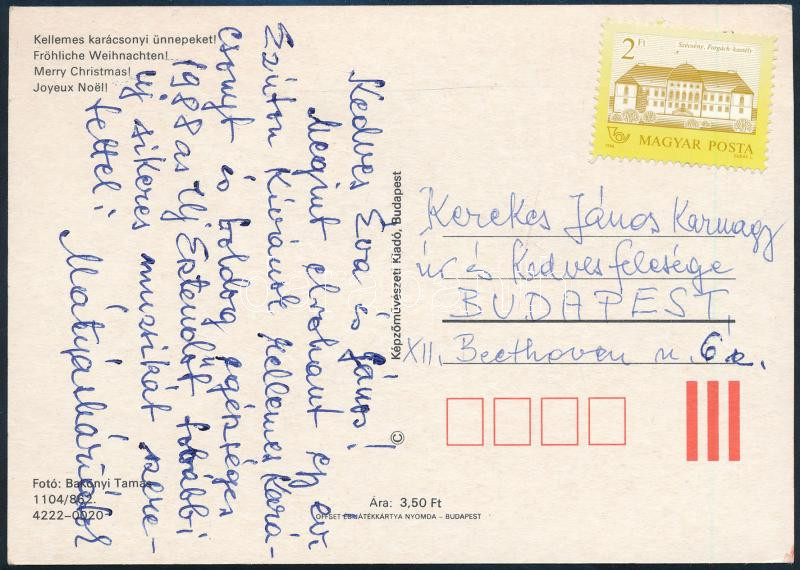 Kellemes karácsonyi ünnepeket!
Fröhliche Weihnachten!
Merry Christmas!
Joyeux Noël!
Kedves Éva és János!
Megint elrohant egy év.
Ezúton Kívánok Kellemes Kará-
csonyt és boldog egészséges
1988 as Új Esztendőt további
új sikeres muzsikát szere-
tettel:
Fotó: Bakonyi Tamás
1104/862.
4222-0020
Képzőművészeti Kiadó, Budapest
©
Ára: 3,50 Ft
OFFSET ÉS JÁTÉKKÁRTYA NYOMDA – BUDAPEST
2 Ft
Szécsény. Forgách-kastély
MAGYAR POSTA
Kerekes János Karnagy
úr és Kedves felesége
BUDAPEST
XII. Beethoven u. 6a.